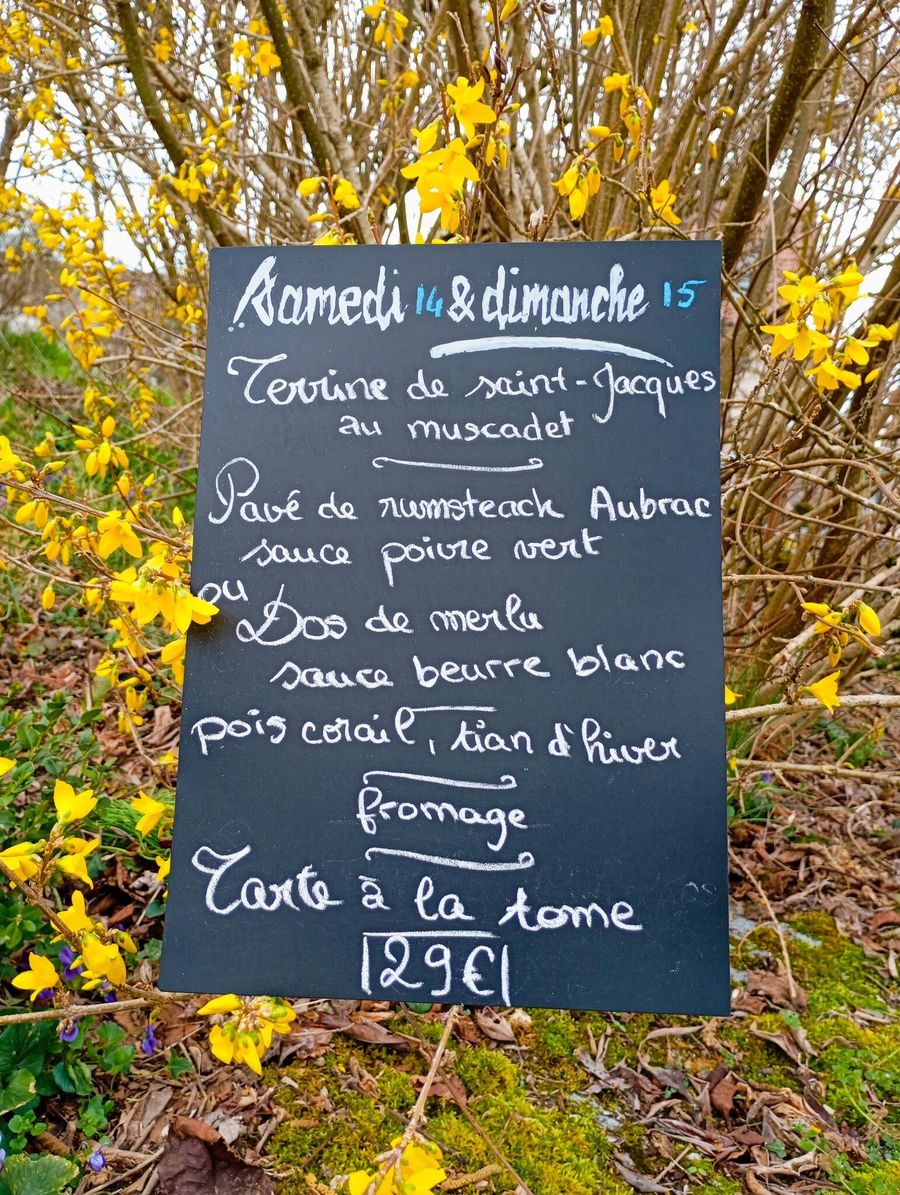 Samedi 14 & dimanche 15
Terrine de saint-Jacques
au muscadet
Pavé de rumsteack Aubrac
sauce poivre vert
ou
Dos de merlu
sauce beurre blanc
pois corail, tian d'hiver
fromage
Tarte à la tome
29€